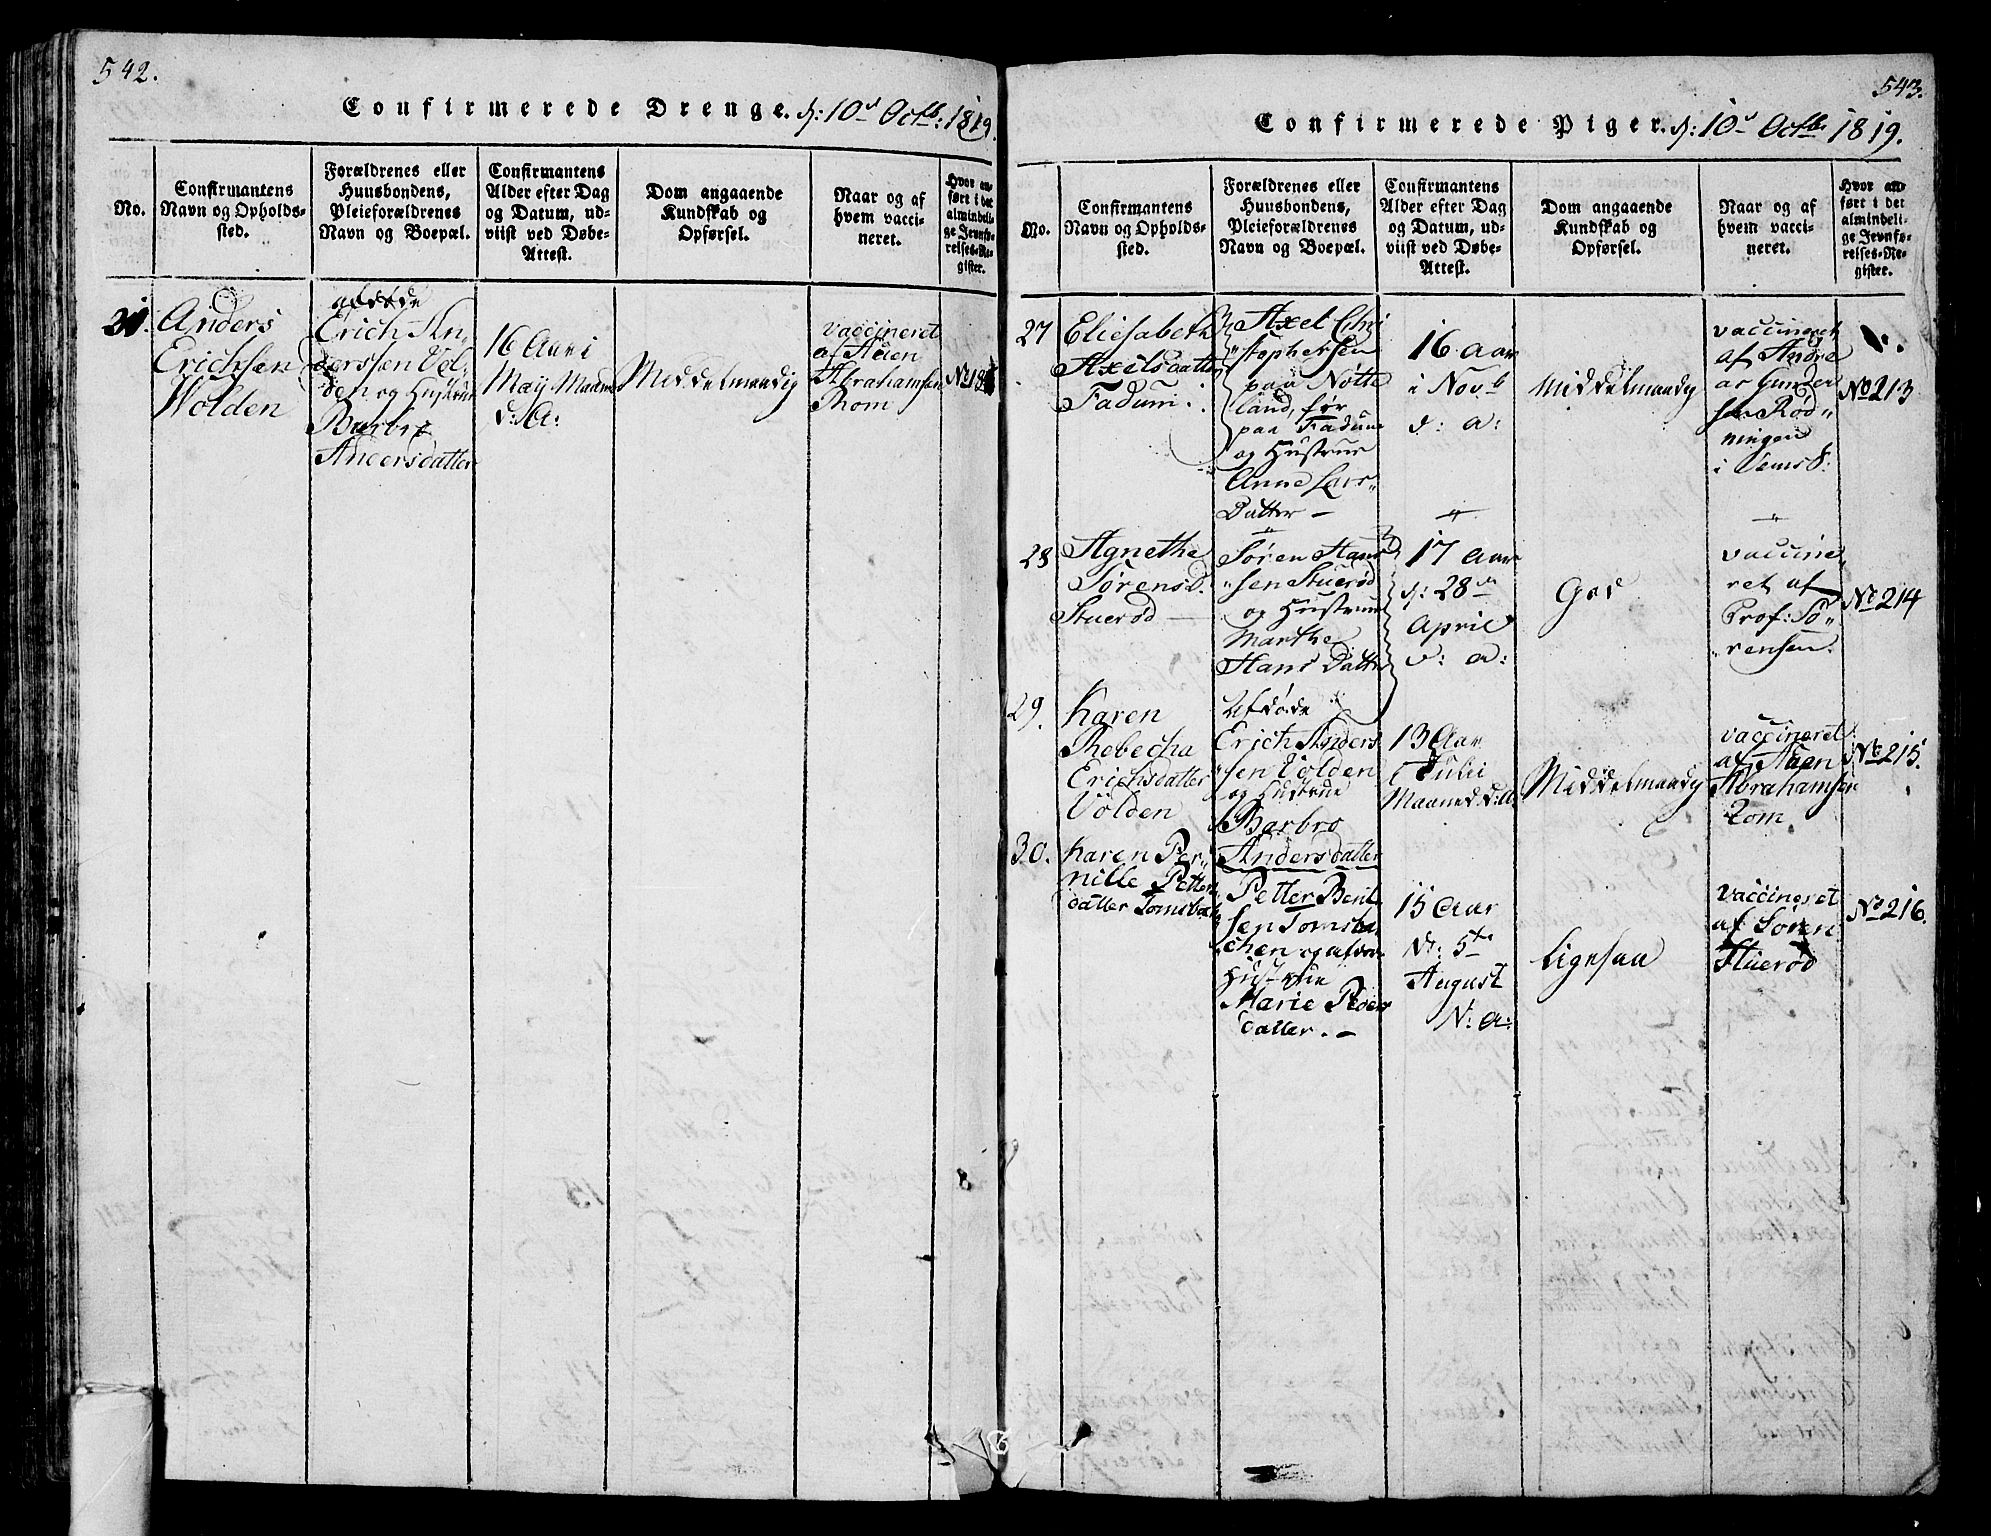 542.
Confirmerede Drenge. d: 10d Octb: 1819.
No.
Confirmantens
Navn og Opholds-
sted.
Forældrenes eller
Huusbondens,
Pleieforældrenes
Navn og Boepæl.
Confirmantens
Alder efter Dag
og Datum, ud-
viist ved Døbe-
Attest.
Dom angaaende
Kundskab og
Opførsel.
Naar og af
hvem vacci-
neret.
Hvor an-
ført i det
almindeli-
ge Jevnfø-
relses-Re-
gister.
Anders
Erichsen
Wolden
afdøde
Erich An-
derssen Vol-
den og Hustrue
Barbro
Andersdatter
16 Aar i
May Maaned
d: A:
Middelmaadig
vaccineret
af
Abrahamsen
Rom
543.
Confirmerede Piger. d: 10d Octb: 1819.
No.
Confirmantens
Navn og Opholds-
sted.
Forældrenes eller
Huusbondens,
Pleieforældrenes
Navn og Boepæl.
Confirmantens
Alder efter Dag
og Datum, ud-
viist ved Døbe-
Attest.
Dom angaaende
Kundskab og
Opførsel.
Naar og af
hvem vacci-
neret.
Hvor an-
ført i det
almindeli-
ge Jevnfø-
relses-Re-
gister.
27
Eliesabeth
Axelsdatter
Fadum.
Axel Chri
stophersen
paa Nøtte
land, før
paa Fadum
og Hustrue
Anne Lars-
Datter -
16 Aar
i Novb
d: a:
Middelmaadig
vaccineret
af Andre
as Gunder
sen Rød-
ningen
i Sems S:
No 213
28
Agnethe
Sørensd.
Stuerød
Søren Han
sen Stuerød
og Hustrue
Marthe
Hans Datter
17 Aar
d: 28de
April
d: a:
God
vaccine
ret af
Prof: Sø-
rensen.
No 214
29.
Karen
Rebecha
Erichsdatter
Volden
Afdøde
Erich Anders
sen Volden
og Hustrue
Barbro
Andersdatter
13 Aar
i Julii
Maaned d: A:
Middelmaadig
vaccineret
af
Abrahamsen
Rom
No 215.
30.
Karen Per-
nille Petters
datter Tomsbak
Petter Bent
sen Tomsba-
chen og afdøde
Hustrue
Marie Peder
datter. -
15 Aar
d: 5te
August
d: a:
Ligesaa
vaccineret
af Søren
Stuerød
No 216.